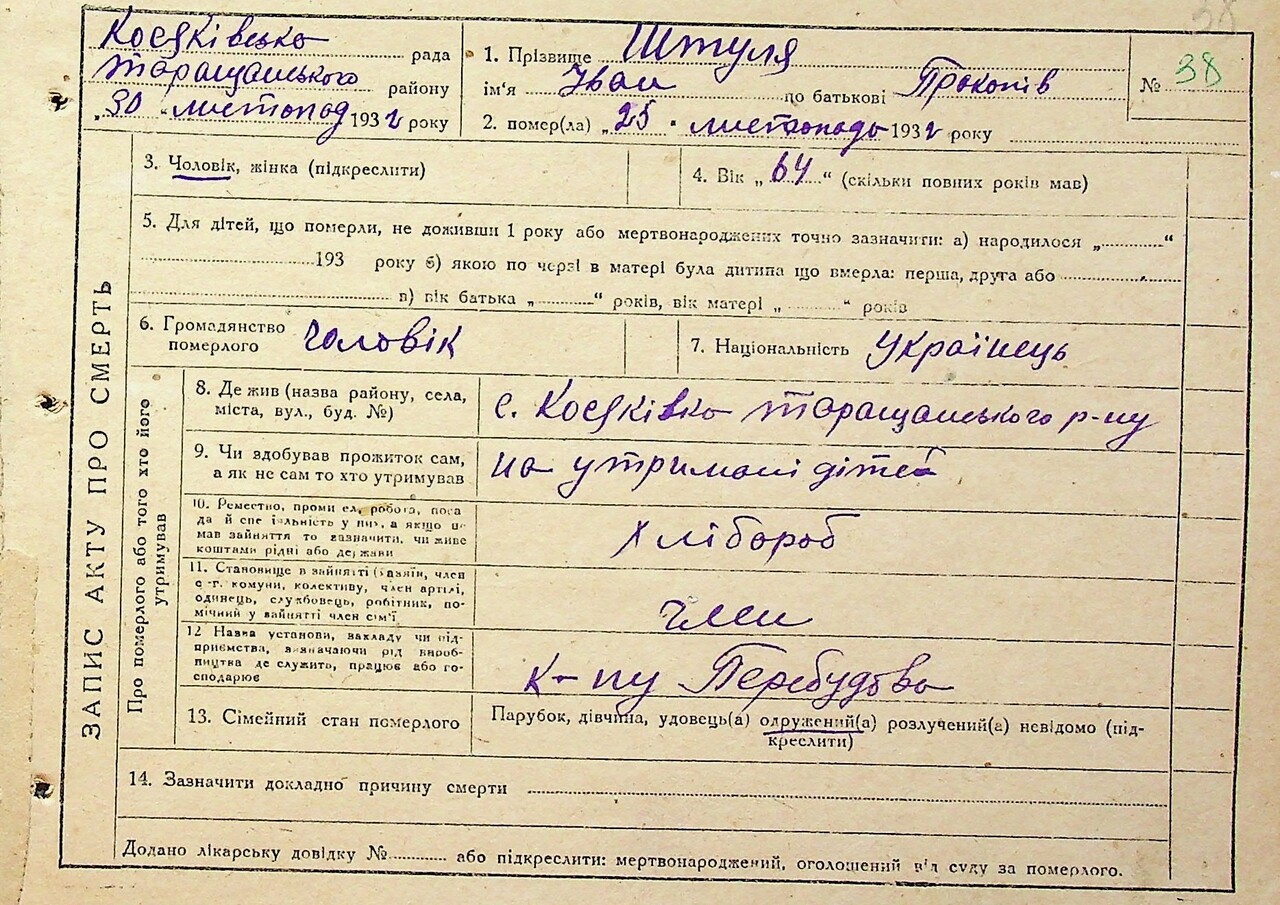 38
Косяківсько рада
Таращанського району
„30“ листопад 1932 року
1. Прізвище Штуля
ім'я Іван по батькові Прокопів
2. помер(ла) „25“ листопадо 1932 року
№ 38
3. Чоловік, жінка (підкреслити)
4. Вік „64“ (скільки повних років мав)
5. Для дітей, що померли, не доживши 1 року або мертвонароджених точно зазначити: а) народилося „............“
193 року б) якою по черзі в матері була дитина що вмерла: перша, друга або
в) вік батька „..........“ років, вік матері „..........“ років
6. Громадянство
померлого чоловік
7. Національність Українець
ЗАПИС АКТУ ПРО СМЕРТЬ
Про померлого або того хто його
утримував
8. Де жив (назва району, села,
міста, вул., буд. №)
с. Косяківко таращанського р-ну
9. Чи здобував прожиток сам,
а як не сам то хто утримував
на утримані дітей
10. Ремество, проми ел, робота, поса
да й спе іяльність у них, а якщо не
мав зайняття то зазначити, чи живе
коштами рідні або держави
Хлібороб
11. Становище в зайнятті (хазяїн, член
с.-г. комуни, колективу, член артілі,
одинець, службовець, робітник, по-
мічний у зайнятті член сім'ї
член
12 Назва установи, закладу чи під-
приємства, визначаючи рід вироб-
ництва де служить, працює або го-
сподарює
к-пу Перебудова
13. Сімейний стан померлого
Парубок, дівчина, удовець(а) одружений(а) розлучений(а) невідомо (під-
креслити)
14. Зазначити докладно причину смерти
Додано лікарську довідку №.......... або підкреслити: мертвонароджений, оголошений від суду за померлого.